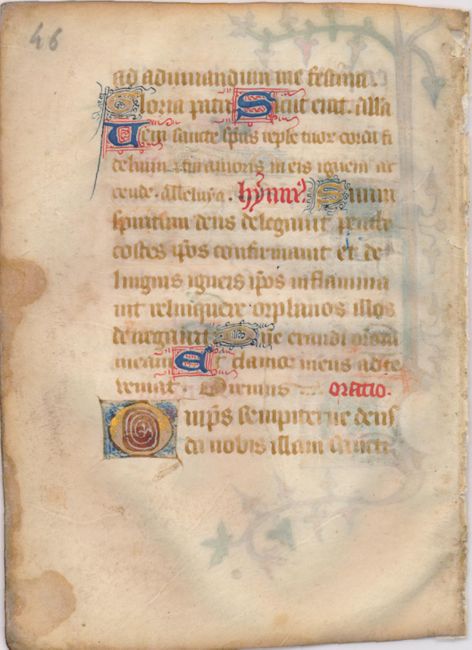 46
ad adiuuandum me festina.
Gloria patri Sicut erat. Alla
Veni sancte sp̄us reple tuor corda fi
delium & tui amoris in eis ignem ac
cende. Alleluya. hymn9. Sanm
spiritum deus delegauit penthe
costes ip̄os confirmauit et de
linguis igneis ip̄os inflamma
uit relinquere orphanos illos
denegauit. Dn̄e exaudi or̄om
meam Et clamor meus ad te
veniat. Oremus oratio.
Om̄ps sempiterne deus
da nobis illam sancti